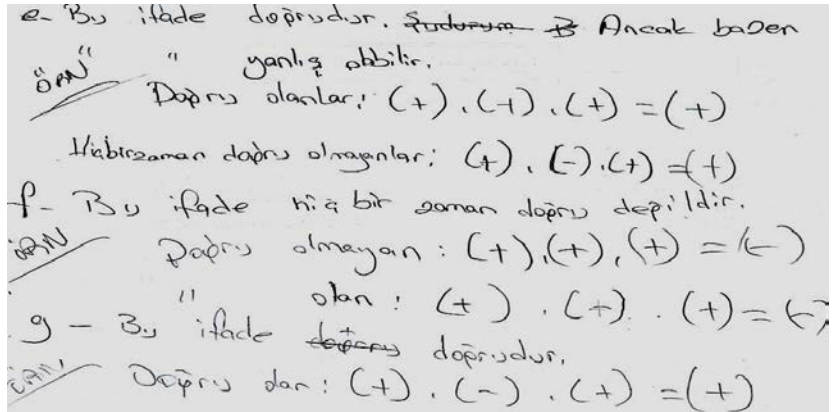 e- Bu ifade doğrudur. Ancak bazen
"ÖRN" " yanlış olabilir.
Doğru olanlar: (+).(+).(+)=(+)
Hiçbirzaman doğru olmayanlar: (+).(-).(+)=(+)
f- Bu ifade hiç bir zaman doğru değildir.
ÖRN Doğru olmayan: (+).(+).(+)=(-)
" olan: (+).(+).(+)=
g- Bu ifade doğrudur.
ÖRN Doğru olan: (+).(-).(+)=(+)